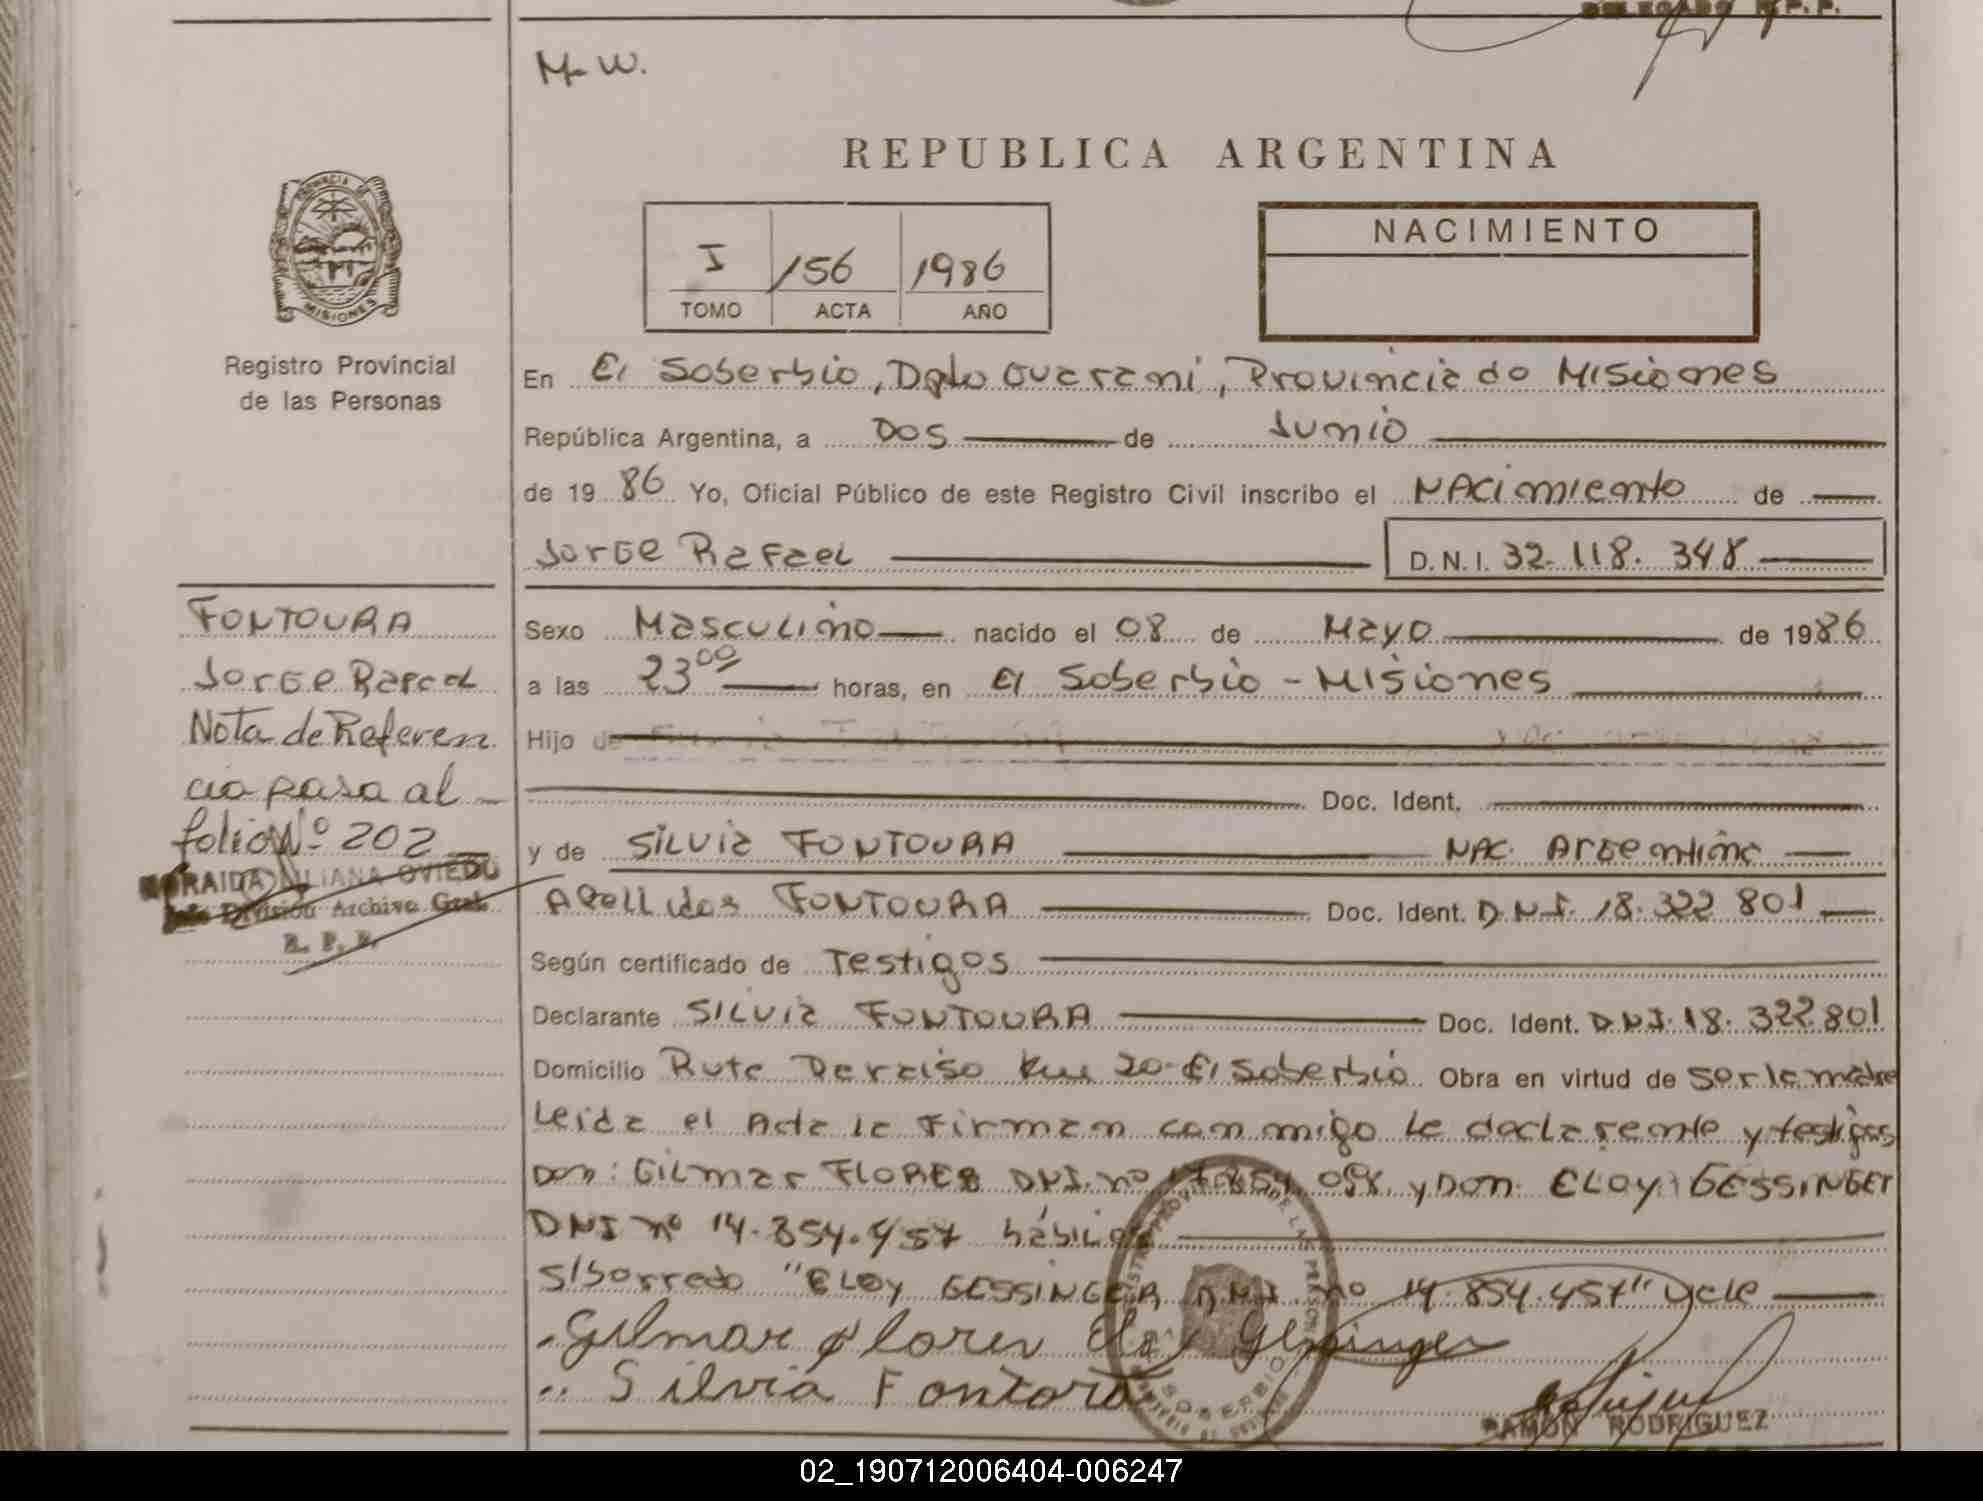 DELEGADO R.P.P.
M- W.
REPUBLICA ARGENTINA
PROVINCIA DE
MISIONES
I 156 1986
TOMO ACTA AÑO
NACIMIENTO
Registro Provincial
de las Personas
En El Soberbio, Dpto Guarani, Provincia de Misiones
República Argentina, a Dos de Junio
de 1986 Yo, Oficial Público de este Registro Civil inscribo el NACimiento de
Jorge Rafael D.N.I. 32.118.348
FONTOURA
Jorge Rafael
Nota de Referen
cia pasa al
folio Nº 202
LILIANA OVIEDO
Jefe División Archivo Gral.
R. P. P.
Sexo Masculino nacido el 08 de Mayo de 1986
a las 23 00 horas, en El Soberbio - Misiones
Hijo de
Doc. Ident.
y de Silvia FONTOURA NAC. Argentina
Apellidos FONTOURA Doc. Ident. D.N.I. 18.322 801
Según certificado de Testigos
Declarante Silvia FONTOURA Doc. Ident. D.N.I. 18.322.801
Domicilio Ruta Paraiso Km 20-El Soberbio Obra en virtud de ser la madre
Leida el Acta la Firman conmigo la declarante y testigos
Don: Gilmar FLORES DNI. nº 17.854 098 y Don ELOY GESSINGER
DNI nº 14.854.457 hábiles
S/borrado "ELOY GESSINGER DNI nº 14.854.457" Vale
Gilmar Flores Eloy Gessinger
Silvia Fontora
SOBERBIO
RAMON RODRIGUEZ
02_190712006404-006247